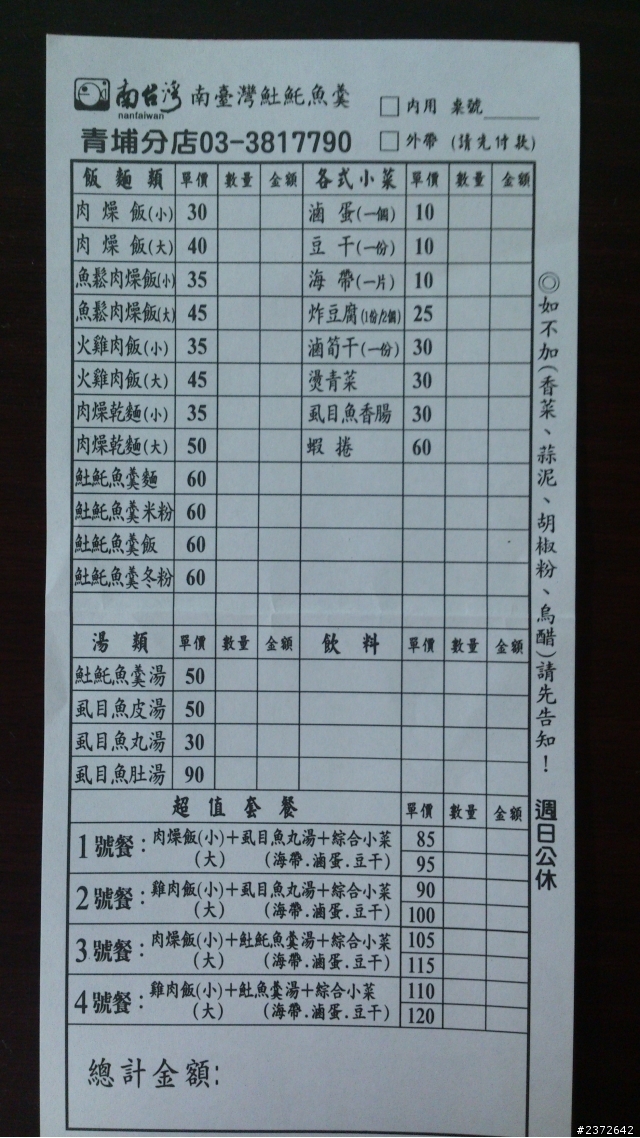 南台灣 南臺灣魠魠魚羹 □內用 桌號
nantaiwan
青埔分店03-3817790 □外帶 (請先付款)
飯麵類 單價 數量 金額 各式小菜 單價 數量 金額
肉燥飯(小) 30 滷蛋(一個) 10
肉燥飯(大) 40 豆干(一份) 10
魚鬆肉燥飯(小) 35 海帶(一片) 10
魚鬆肉燥飯(大) 45 炸豆腐(1份/2個) 25
火雞肉飯(小) 35 滷筍干(一份) 30
火雞肉飯(大) 45 燙青菜 30
肉燥乾麵(小) 35 虱目魚香腸 30
肉燥乾麵(大) 50 蝦捲 60
𩵚魠魚羹麵 60
𩵚魠魚羹米粉 60
𩵚魠魚羹飯 60
𩵚魠魚羹冬粉 60
湯類 單價 數量 金額 飲料 單價 數量 金額
𩵚魠魚羹湯 50
虱目魚皮湯 50
虱目魚丸湯 30
虱目魚肚湯 90
超值套餐 單價 數量 金額
1號餐:肉燥飯(小)+虱目魚丸湯+綜合小菜 85
(大) (海帶.滷蛋.豆干) 95
2號餐:雞肉飯(小)+虱目魚丸湯+綜合小菜 90
(大) (海帶.滷蛋.豆干) 100
3號餐:肉燥飯(小)+𩵚魠魚羹湯+綜合小菜 105
(大) (海帶.滷蛋.豆干) 115
4號餐:雞肉飯(小)+𩵚魚羹湯+綜合小菜 110
(大) (海帶.滷蛋.豆干) 120
總計金額:
◎如不加(香菜、蒜泥、胡椒粉、烏醋)請先告知!
週日公休
#2372642